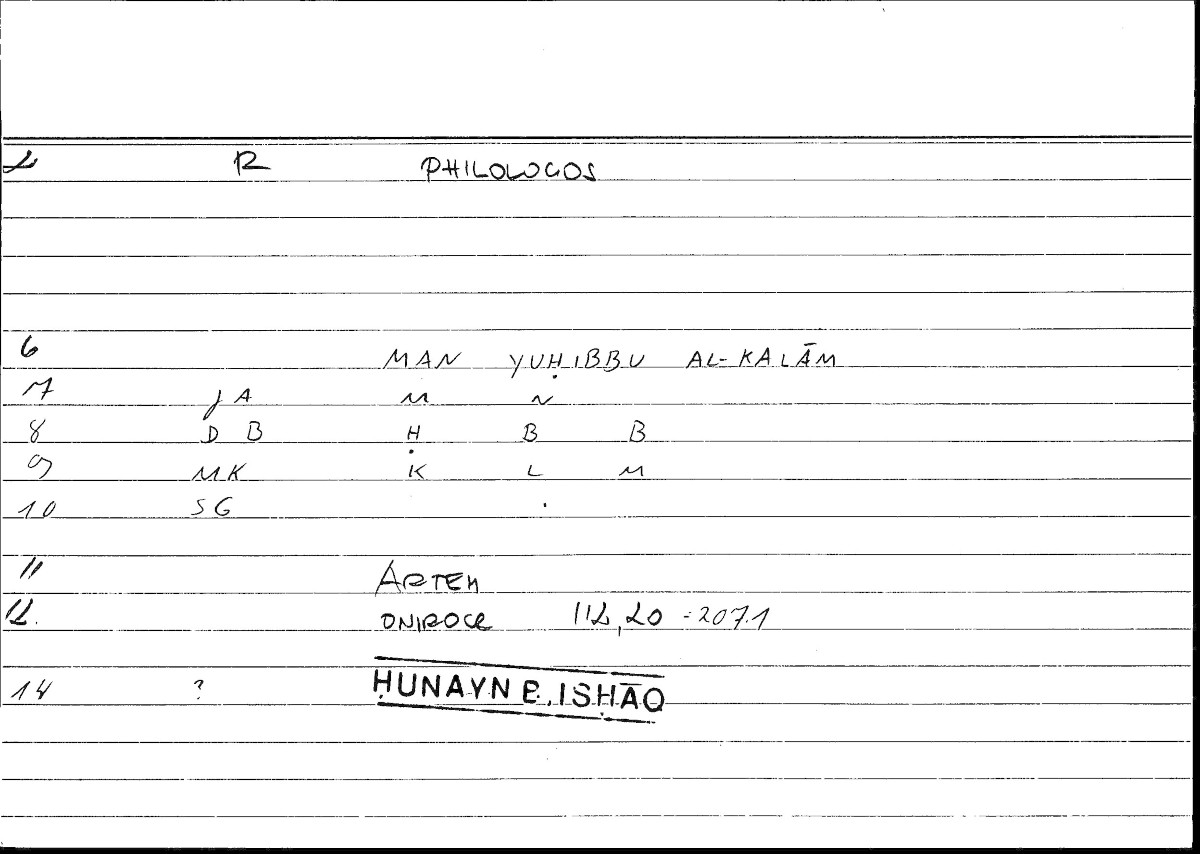 2 R PHILOLOGOS
6 MAN YUḤIBBU AL-KALĀM
7 JA M N
8 D B Ḥ B B
9 MK K L M
10 SG
11 ARTEM
12. ONIROCR 112,20 = 207.1
14 ? ḤUNAYN B. ISḤĀQ